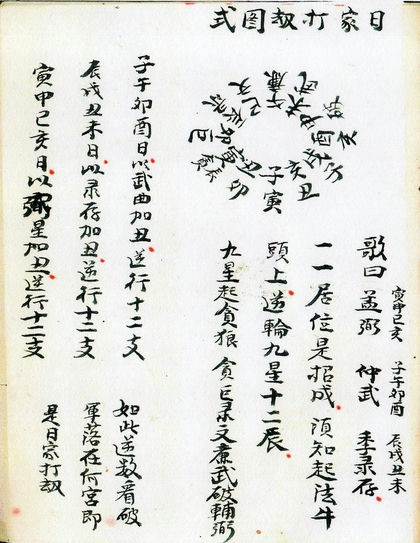 日家打劫图式
寅申巳亥 子午卯酉 辰戌丑未
歌曰 孟弼 仲武 季录存
一一居位是招成 须知起法牛
頭上逆輪九星十二辰
九星起貪狼 貪巨录文廉武破輔弼
子午卯酉日以武曲加丑逆行十二支
辰戌丑未日以录存加丑逆行十二支
寅申巳亥日以弼星加丑逆行十二支
如此逆数看破
軍落在何宫即
是日家打劫